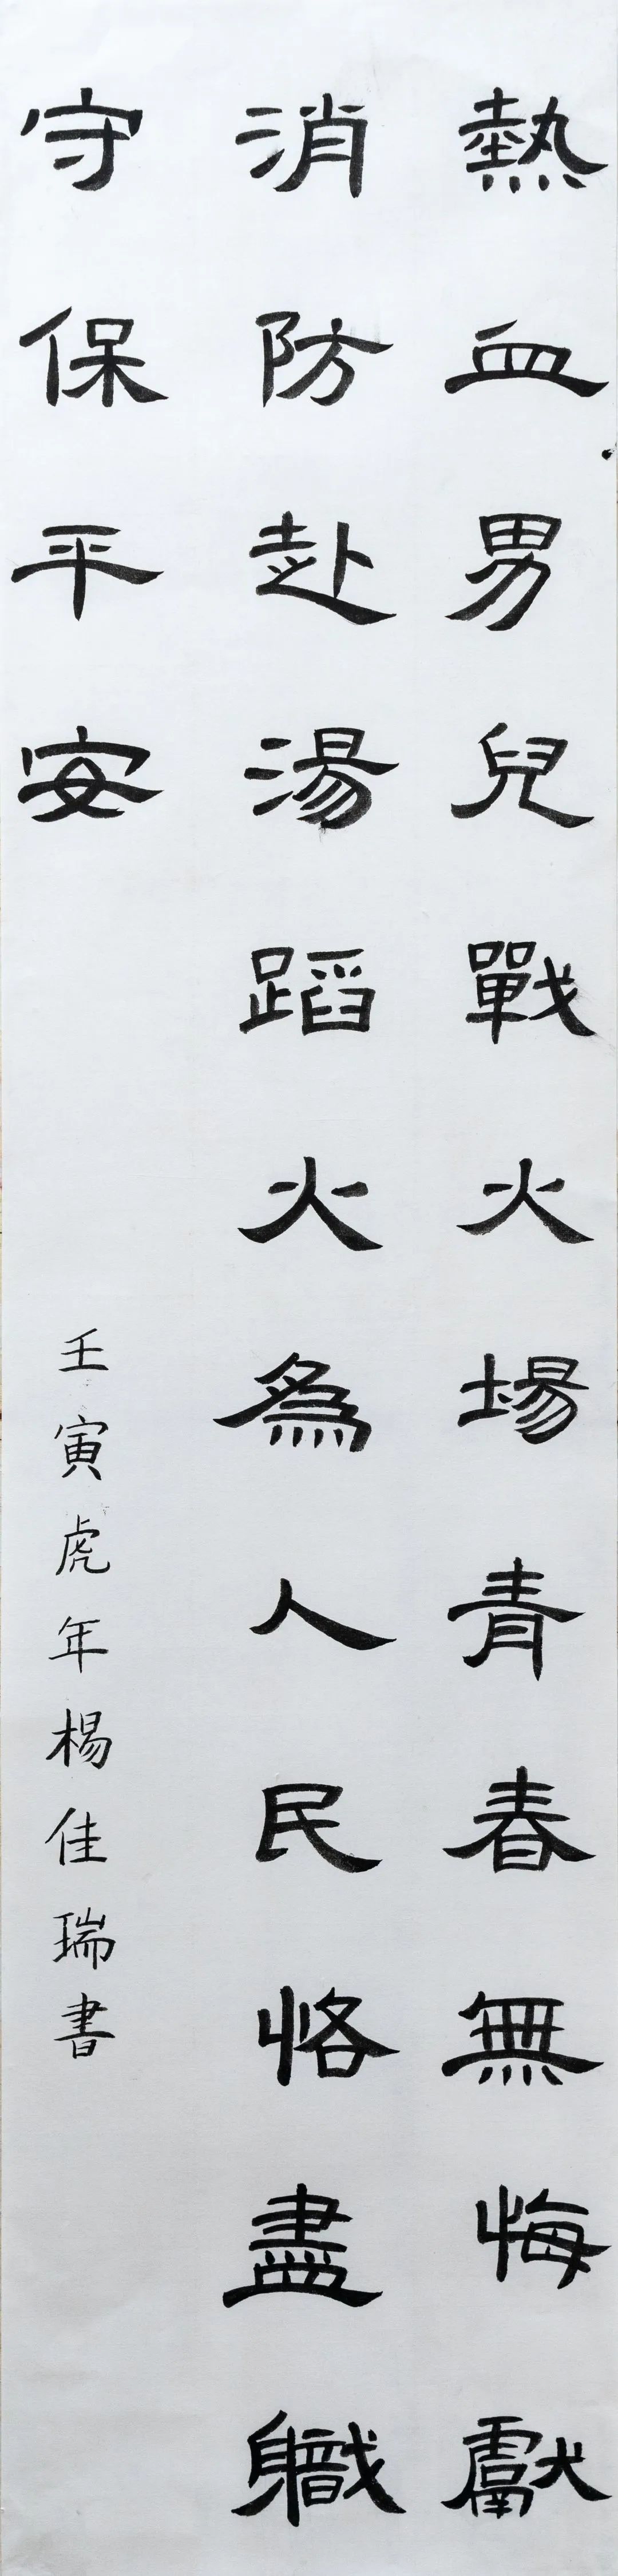 熱血男兒戰火場青春無悔獻
消防赴湯蹈火為人民恪盡職
守保平安
壬寅虎年楊佳瑞書